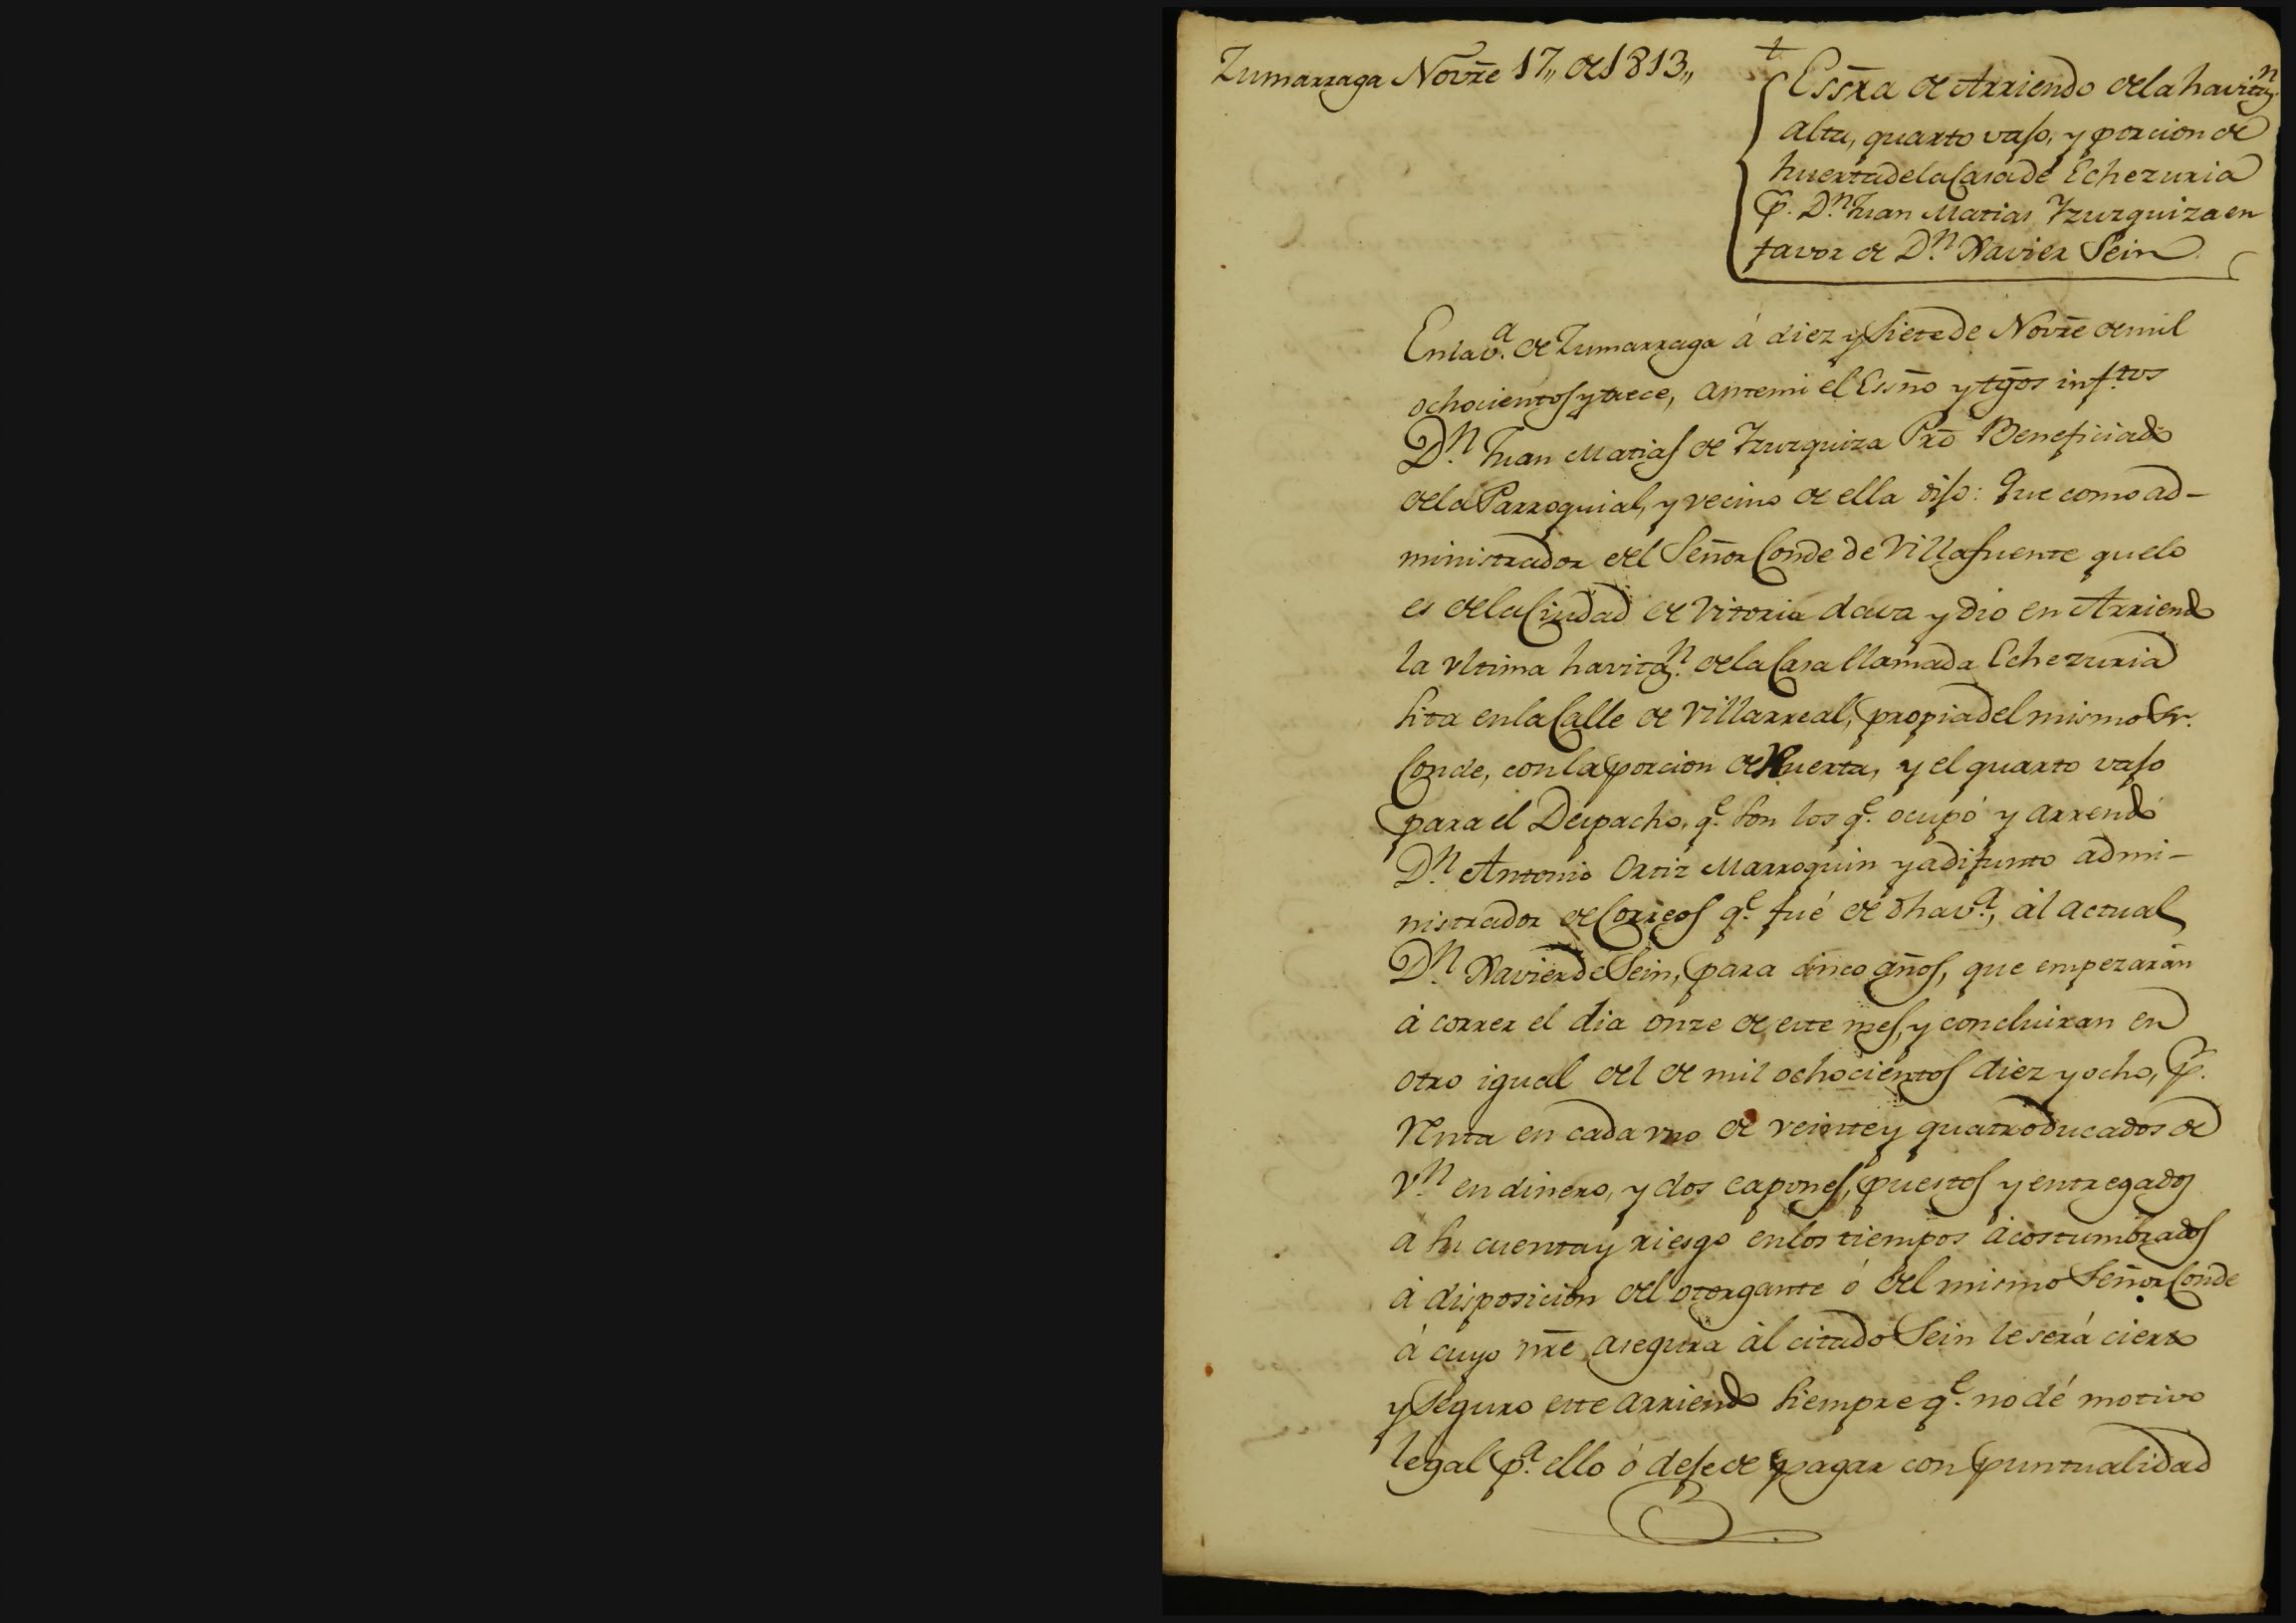 Zumarraga Novre 17,, de 1813,,
Essra de Arriendo de la havitn.
alta, quarto vaso, y porcion de
huerta de la Casa de Echezuria
p. Dn. Juan Matias Yzurquiza en
favor de Dn. Xavier Sein
En la va. de Zumarraga á diez y siete de Novre de mil
ochocientos y trece, ante mi el Essno y tgos inf.tos
Dn. Juan Matias de Yzurquiza Pro Beneficiado
de la Parroquial, y vecino de ella diso: Que como ad-
ministrador del Señor Conde de Villafuente que lo
es de la Ciudad de Vitoria dava y dio en Arriendo
la vltima havitan. de la Casa llamada Echezuria
sita en la Calle de Villarreal, propia del mismo Sr.
Conde, con la porcion de Huerta, y el quarto vaso
para el Despacho, qe. son los qe. ocupó y arrendó
Dn. Antonio Ortiz Marroquin ya difunto admi-
nistrador de Correos qe. fué de dha va., al actual
Dn. Xavier de Sein, para cinco años, que empezarán
á correr el dia onze de este mes, y concluiran en
otro igual del de mil ochocientos diez y ocho, p.
Renta en cada vno de veinte y quatro ducados de
Vn. en dinero, y dos capones, puestos y entregados
a su cuenta y riesgo en los tiempos acostumbrados
á disposicion del otorgante ó del mismo Señor Conde
á cuyo nre asegura al citado Sein le será cierto
y seguro este arriendo siempre qe. no dé motivo
legal pa. ello ó dese de pagar con puntualidad